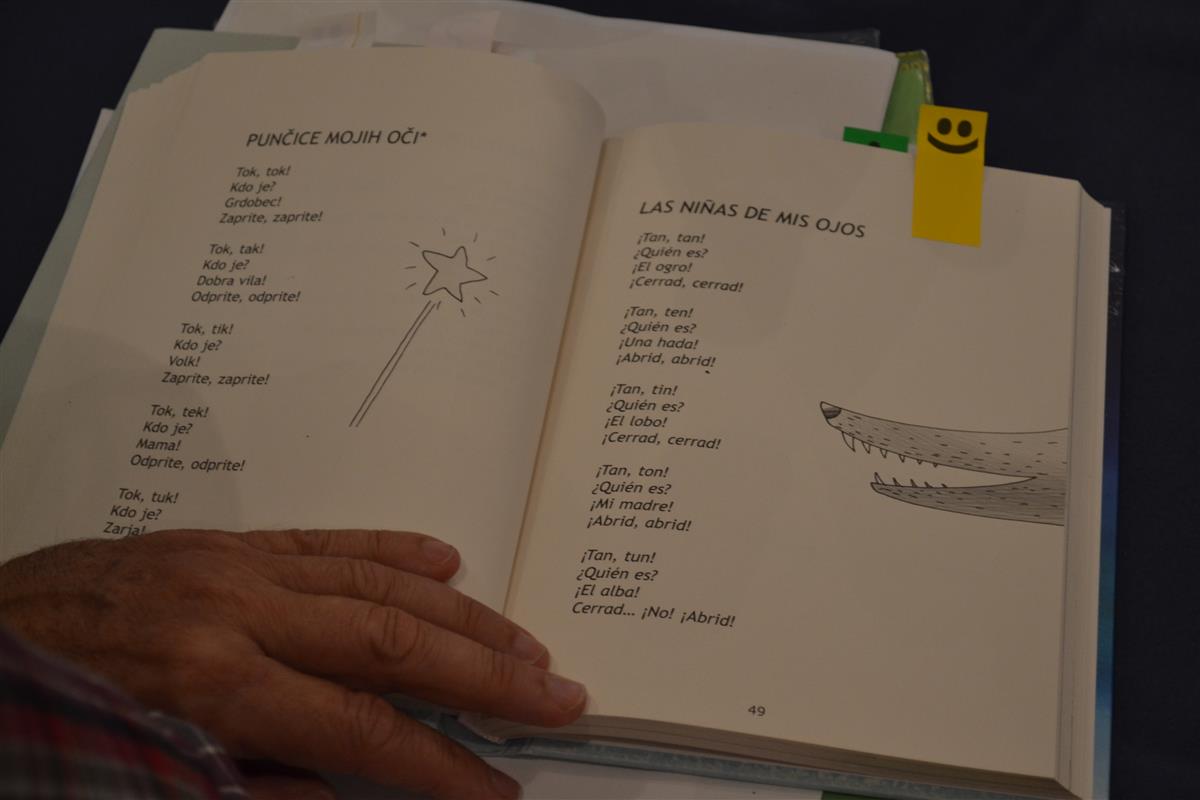 PUNČICE MOJIH OČI*
Tok, tok!
Kdo je?
Grdobec!
Zaprite, zaprite!
Tok, tak!
Kdo je?
Dobra vila!
Odprite, odprite!
Tok, tik!
Kdo je?
Volk!
Zaprite, zaprite!
Tok, tek!
Kdo je?
Mama!
Odprite, odprite!
Tok, tuk!
Kdo je?
Zarja!
LAS NIÑAS DE MIS OJOS
¡Tan, tan!
¿Quién es?
¡El ogro!
¡Cerrad, cerrad!
¡Tan, ten!
¿Quién es?
¡Una hada!
¡Abrid, abrid!
¡Tan, tin!
¿Quién es?
¡El lobo!
¡Cerrad, cerrad!
¡Tan, ton!
¿Quién es?
¡Mi madre!
¡Abrid, abrid!
¡Tan, tun!
¿Quién es?
¡El alba!
Cerrad... ¡No! ¡Abrid!
49